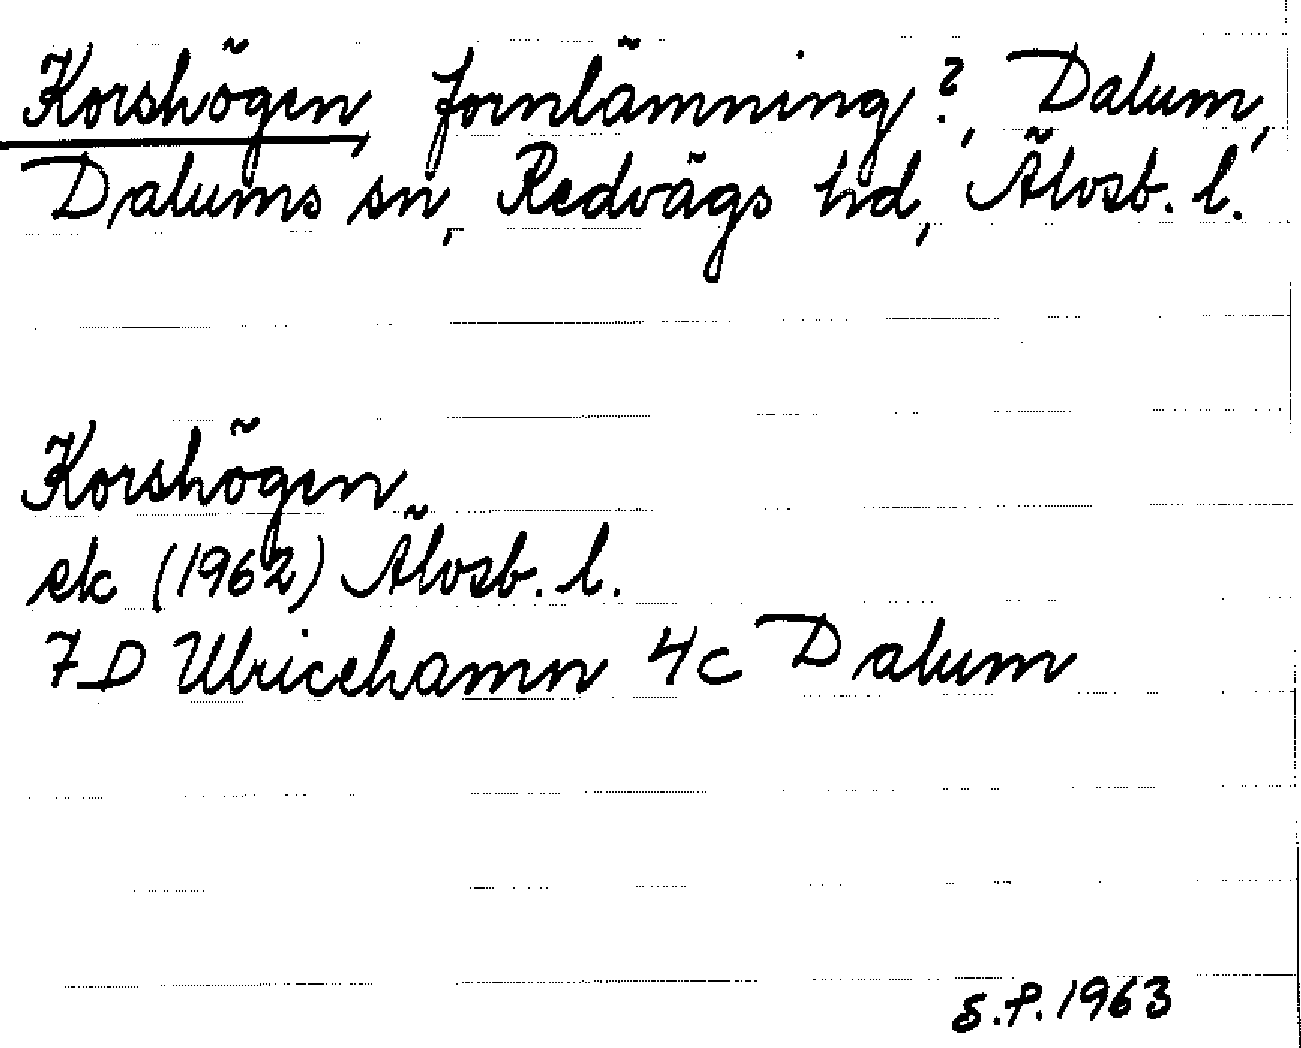 Korshögen, fornlämning?, Dalum,
Dalums sn, Redvägs hd, Älvsb. l.
Korshögen
ek (1962) Älvsb. l.
7D Ulricehamn 4c Dalum
S.P. 1963